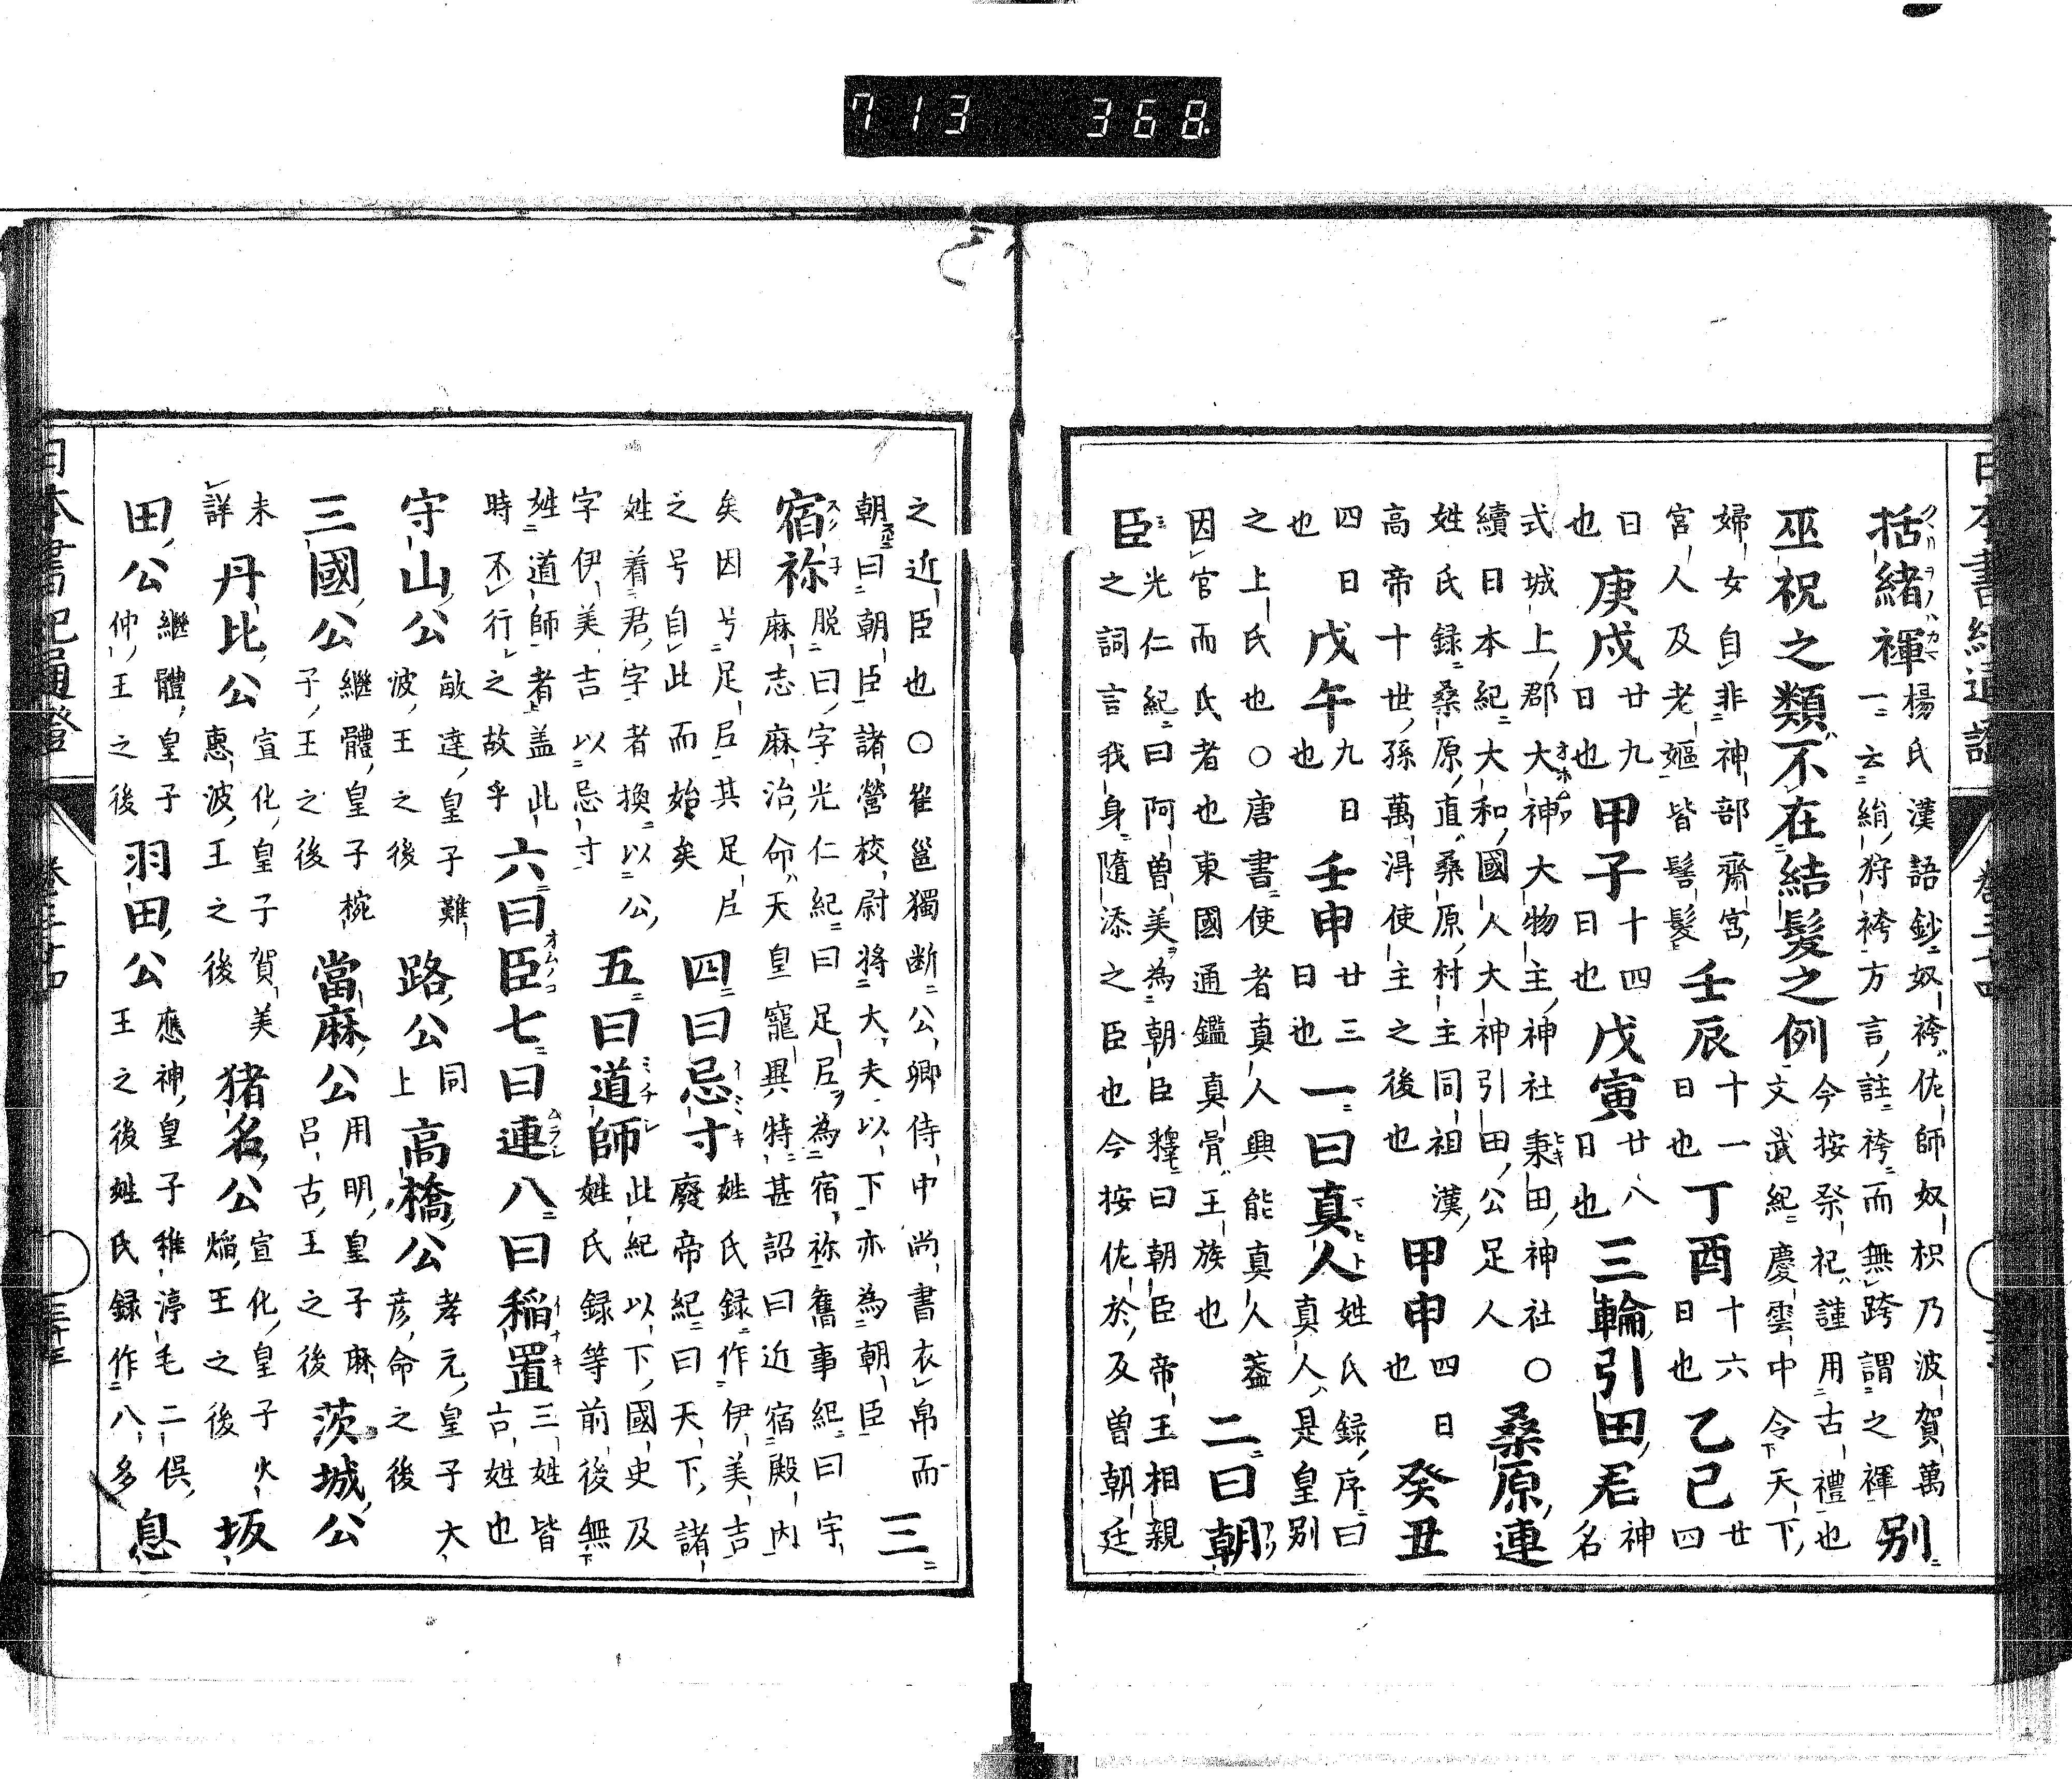 括緒褌楊氏漢語鈔奴袴佐師奴枳乃波賀萬一云絹狩袴方言註袴而無跨謂之褌别
巫祝之類不在結髮之例今按祭祀謹用古禮也文武紀慶雲中令天下
婦女自非神部齋宮宮人及老嫗皆髻髮壬辰十一日也丁酉十六日也乙巳廿四
日也庚戌廿九日也甲子十四日也戊寅廿八日也三輪引田君神名
式城上郡大神大物主神社秉田神社○續日本紀大和國人大神引田公足人桑原連
姓氏録桑原直桑原村主同祖漢高帝十世孫萬淂使主之後也甲申四日也癸丑
四日也戊午九日也壬申廿三日也一曰真人姓氏録序曰真人是皇别
之上氏也○唐書使者真人興能真人蓋因官而氏者也東國通鑑真骨王族也二曰朝
臣光仁紀曰阿曽美為朝臣釋曰朝臣帝王相親之詞言我身隨添之臣也今按佐於及曽朝廷
之近臣也○崔邕獨断公卿侍中尚書衣帛而朝曰朝臣諸營校尉將大夫以下亦為朝臣三
宿祢脱曰字光仁紀曰足尼為宿祢舊事紀曰宇麻志麻治命天皇寵異特甚詔曰近宿殿内
矣因号足尼其足尼之号自此而始矣四曰忌寸姓氏録作伊美吉廢帝紀曰天下諸
姓着君字者換以公字伊美吉以忌寸五曰道師此紀以下國史及姓氏録等前後無
姓道師者盖此時不行之故乎六曰臣七曰連八曰稲置三姓皆古姓也
守山公敏達皇子難波王之後路公同上高橋公孝元皇子大彦命之後
三國公繼體皇子椀子王之後當麻公用明皇子麻呂古王之後茨城公
未詳丹比公宣化皇子賀美惠波王之後猪名公宣化皇子火焔王之後坂
田公繼體皇子仲王之後羽田公應神皇子稚渟毛二俣王之後姓氏録作八多息
日本書紀通證
713 368.